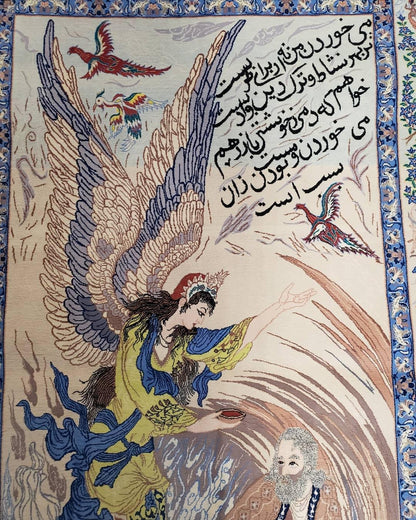 می خوردن من نه از برای طربست
نز بهر نشاط و ترک دین و ادبست
خواهم که دمی ز خویشتن باز رهم
می خوردن و مست بودنم زان
سبب است